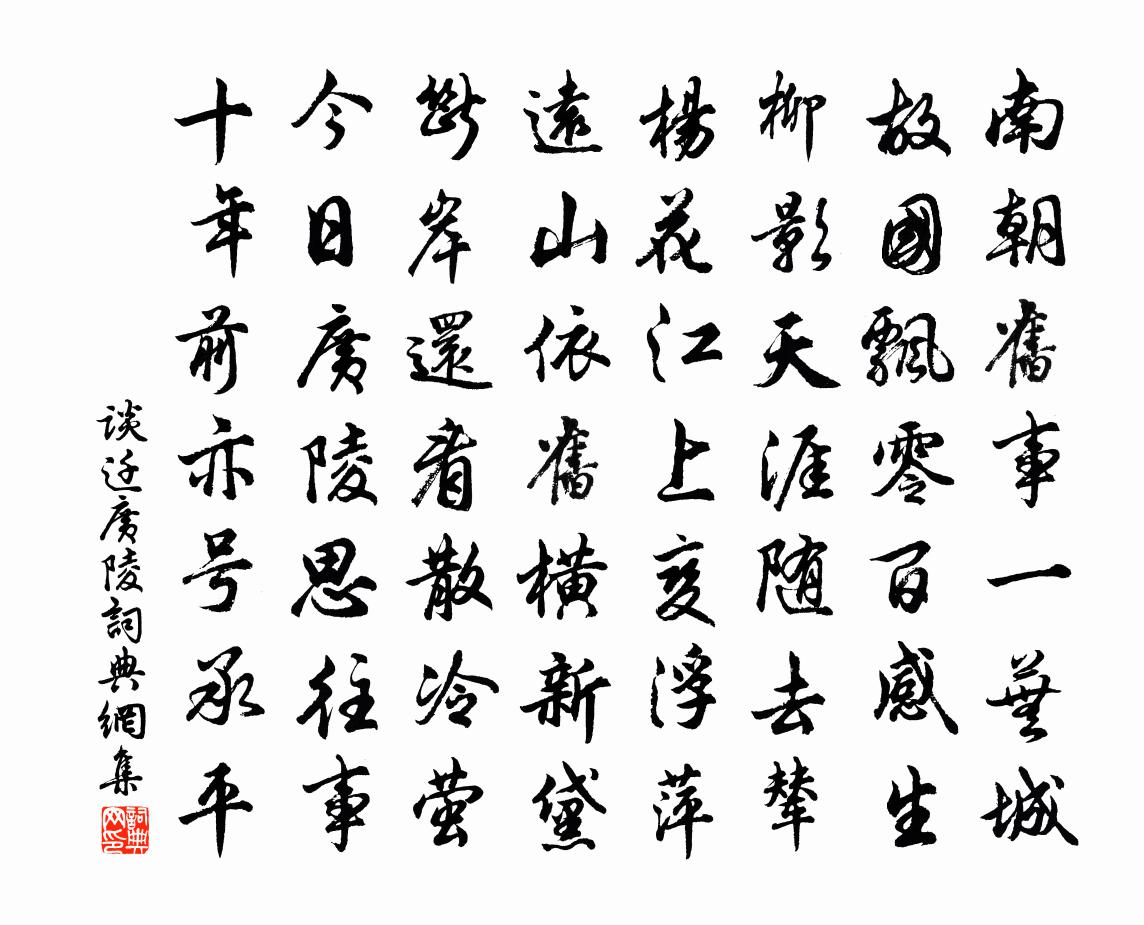 南朝舊事一蕪城
故國飄零百感生
柳影天涯随去輦
楊花江上変浮萍
遠山依舊橫新黛
斷岸還看散冷螢
今日廣陵思往事
十年前亦号承平
談迁廣陵詞典網集
詞典網印